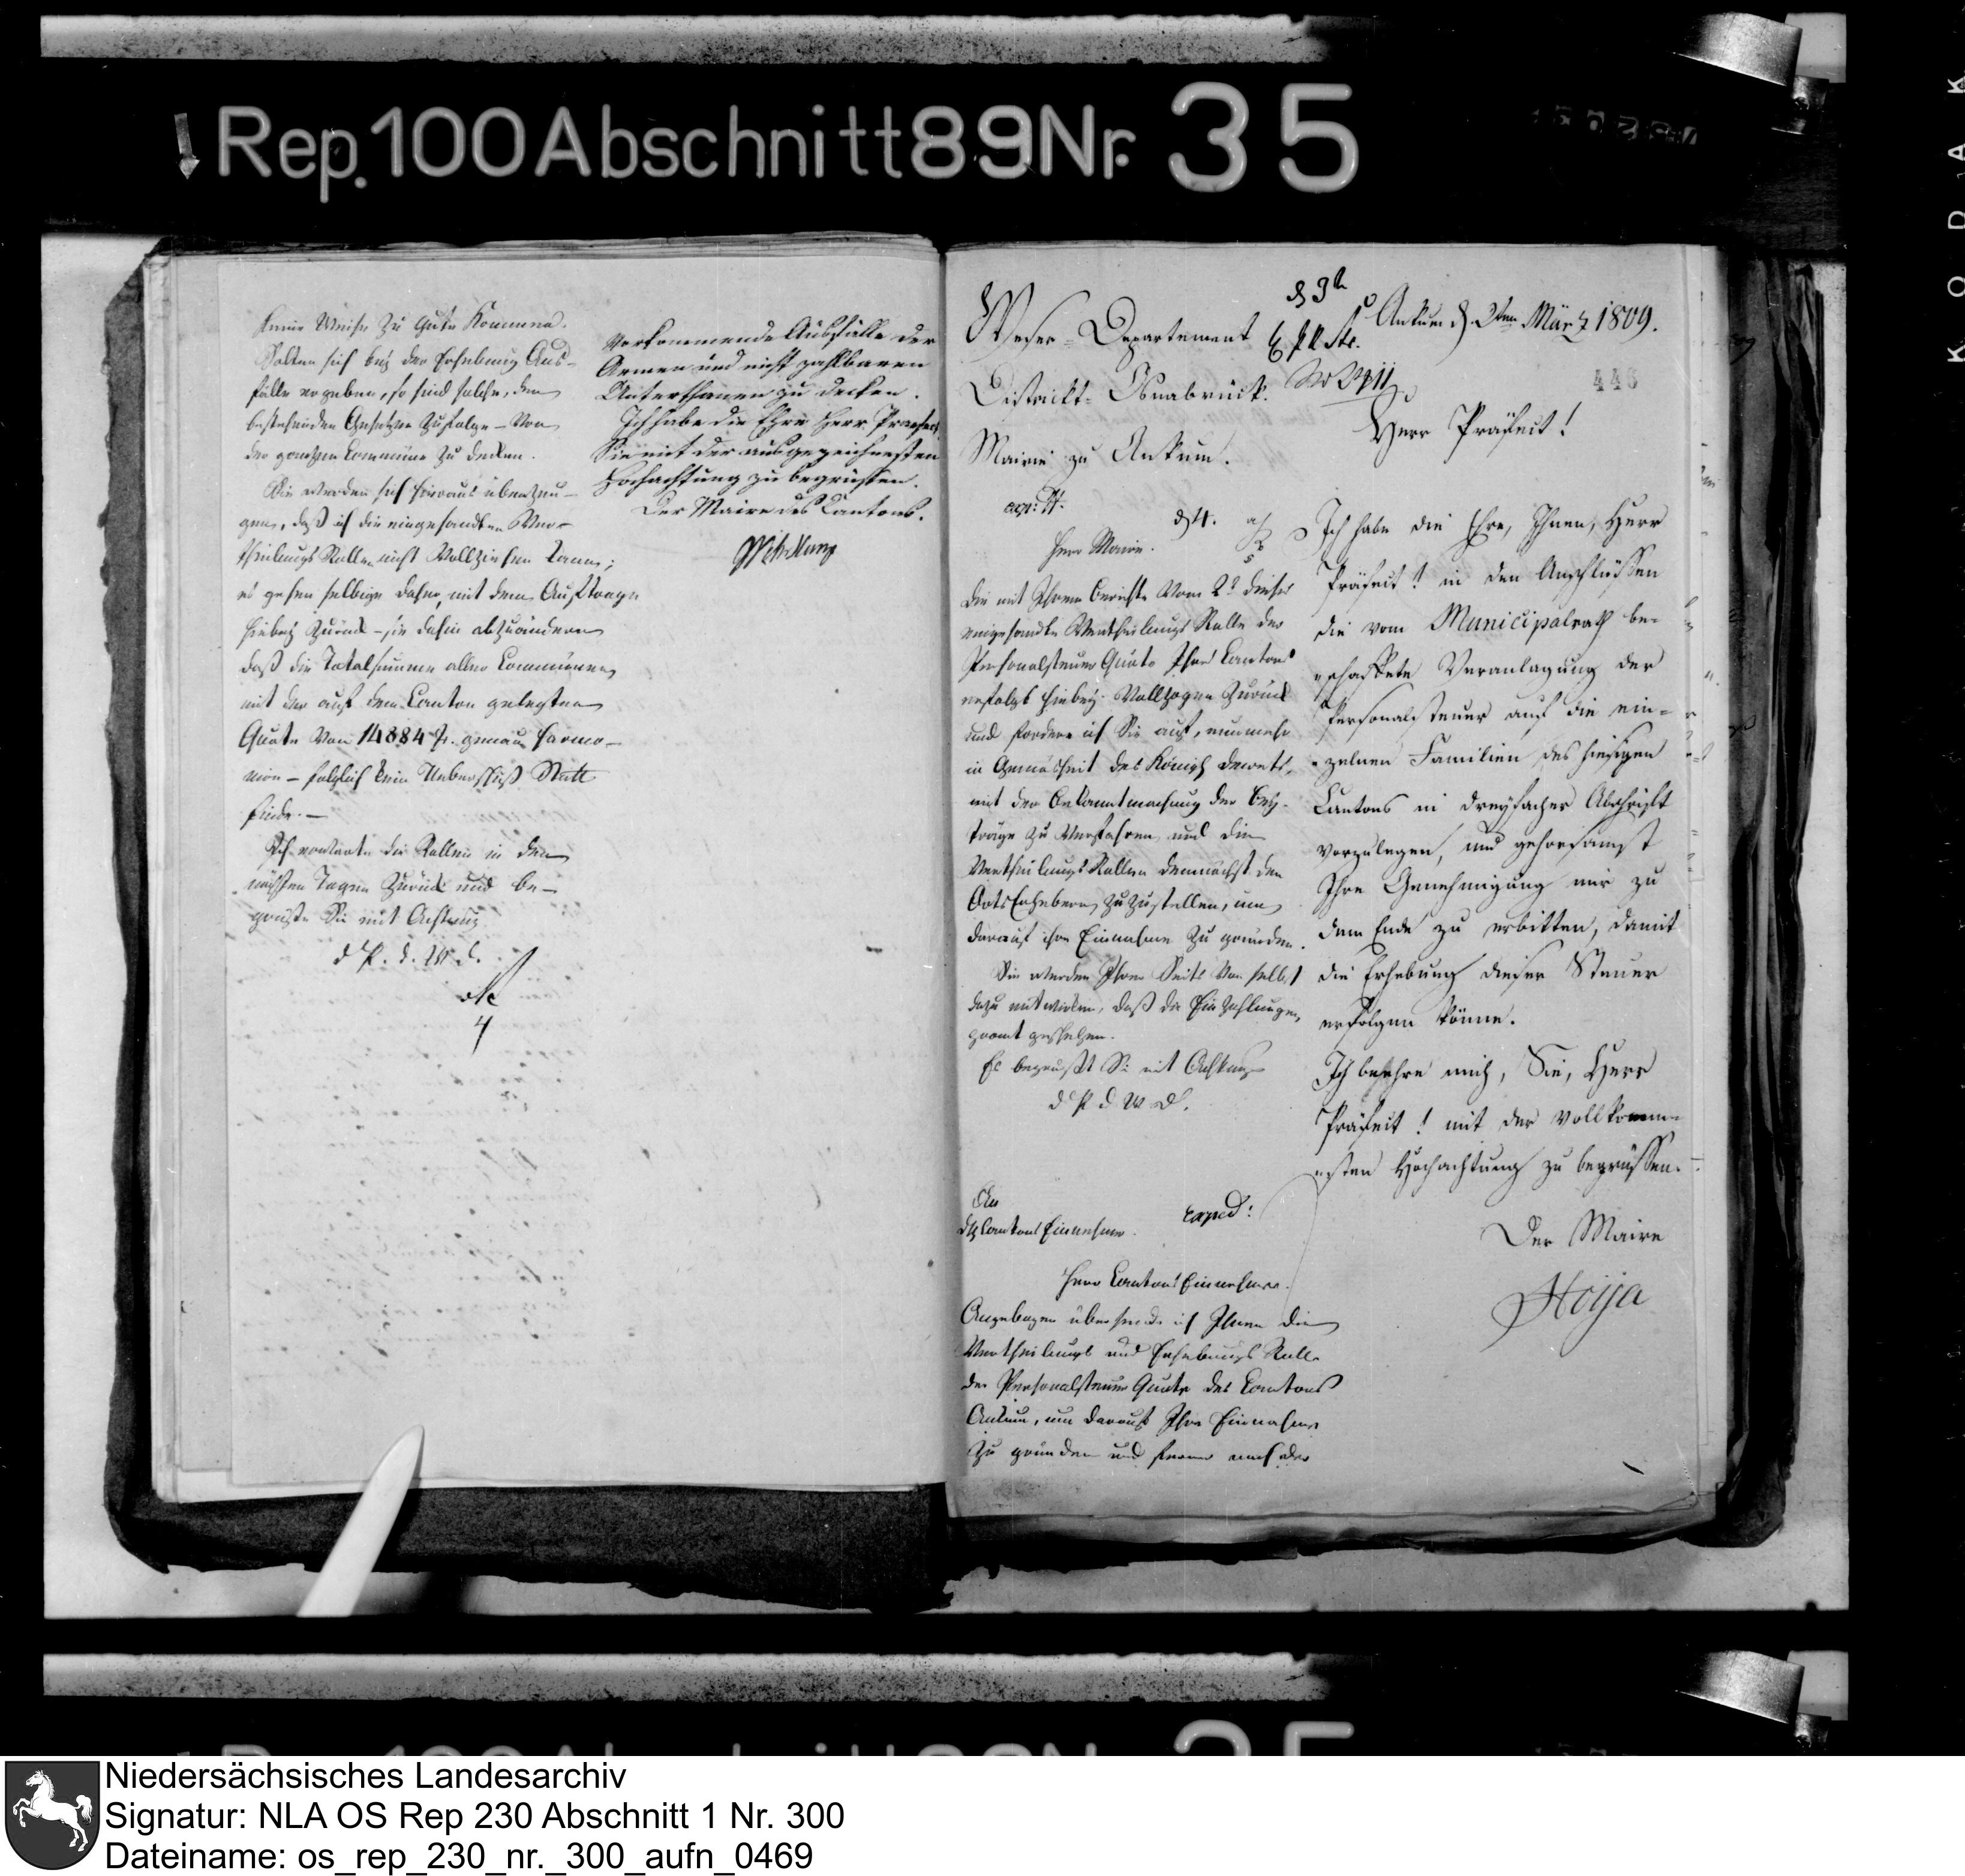 Rep. 100 Abschnitt 89 Nr. 35
keine Weise zu Gute kommen.
Sollten sich bey der Erhebung Aus-
fälle ergeben, so sind solche, den
bestehenden Gesetzen zufolge - von
der ganzen Commüne zu decken.
Sie werden sich hieraus überzeu-
gen, daß ich die eingesandten Ver-
theilungs Rollen nicht vollziehen kann;
es gehen selbige daher, mit dem Auftrage
hiebey zurück - sie dahin abzuändern
daß die Totalsumme aller Communen
mit der auf dem Canton gelegten
Quote von 14884 fr. genau harmo-
nire - folglich kein Ueberschuß Statt
finde. -
Ich erwarte die Rollen in den
nächsten Tagen zurück und be-
grüße Sie mit Achtung
d P. d. W. d.
4
vorkommende Ausfälle der
Armen und nicht zahlbaren
Unterthanen zu decken.
Ich habe die Ehre Herr Praefect
Sie mit der ausgezeichnesten
Hochachtung zu begrüssen.
Der Maire des Cantons.
Weser-Departement
District-Osnabrück.
Mairie zu Ankum.
d 3t
Ankum d. 2ten März 1809.
446
Herr Präfect!
Ich habe die Ehre, Ihnen, Herr
Präfect! in den Anschlüssen
die vom Municipalrath be-
schaffete Veranlagung der
Personalsteuer auf die ein-
zelnen Familien des hiesigen
Cantons in dreyfacher Abschrift
vorzulegen, und gehorsamst
Ihre Genehmigung mir zu
dem Ende zu erbitten, damit
die Erhebung dieser Steuer
erfolgen könne.
Ich beehre mich, Sie, Herr
Präfect! mit der vollkomme-
nsten Hochachtung zu begrüssen.
Der Maire
Hoija
exp: 4.
d 4.
Herr Maire.
Die mit Ihrem Berichte vom 2t dieses
eingesandte Vertheilungs Rolle der
Personalsteuer Quote Ihres Cantons
erfolgt hiebey vollzogen zurück
und fordere ich Sie auf, nunmehr
in Gemäsheit des Königl Decrets,
mit der Bekanntmachung der Bey-
träge zu verfahren und die
Vertheilungs Rollen demnächst den
Orts Erhebern zuzustellen, um
darauf ihre Einnahme zu gründen.
Sie werden Ihrer Seits von selbst
dazu mitwirken, daß die Einzahlungen
prompt geschehen.
Es begrüßt Sie mit Achtung
d P d W D.
An
den Cantons Einnehmer.
exped:
Herr Cantons Einnehmer.
Angebogen übersende ich Ihnen die
Vertheilungs und Erhebungs Rolle
der Personalsteuer Quote des Cantons
Ankum, um darauf Ihre Einnahme
zu gründen und ferner nach der
KODAK
Niedersächsisches Landesarchiv
Signatur: NLA OS Rep 230 Abschnitt 1 Nr. 300
Dateiname: os_rep_230_nr._300_aufn_0469